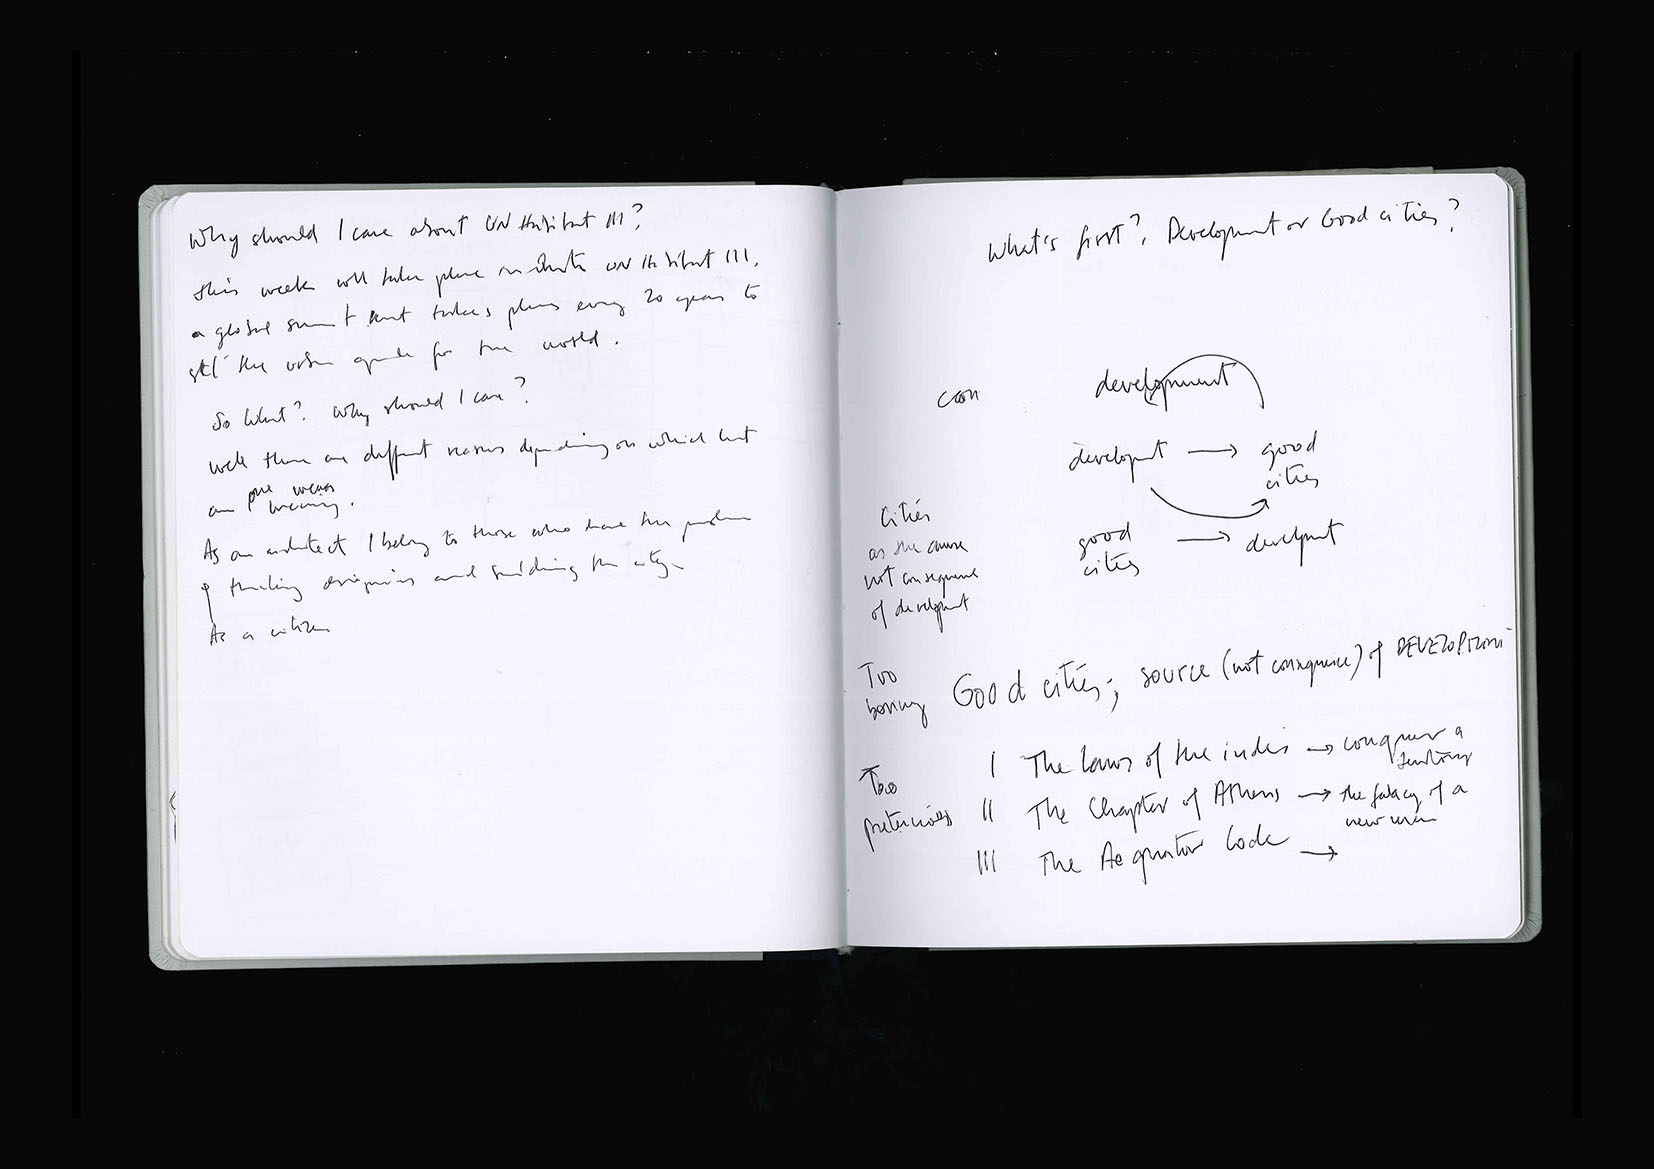 Why should I care about UN Habitat III?
This week will take place in Quito UN Habitat III,
a global summit that takes place every 20 years to
set the urban agenda for the world.
So What? Why should I care?
Well there are different reasons depending on which hat
one wears
wearing.
As an architect I belong to those who have the
of thinking designing and building the city
As a citizen
What's first?, Development or Good cities?
development
developmt → good
cities
good → developmt
cities
Cities
as the cause
not consequence
of developmt
Too
boring
Good cities; source (not consequence) of DEVELOPMENT
Too
pretencious
I The Laws of the indies → conquer a
territory
II The Chapter of Athens → the falacy of a
new man
III The Aequator Code →